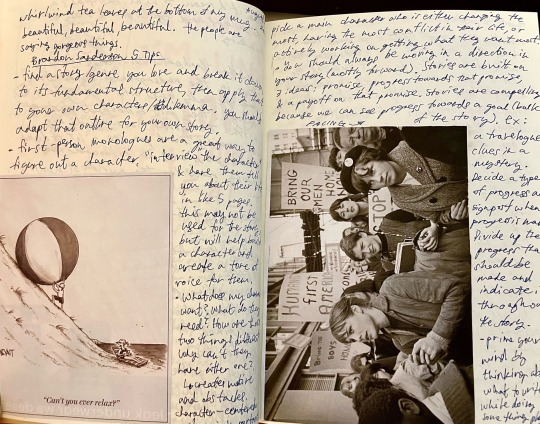 whirlwind tea leaves at the bottom of my mug.
beautiful, beautiful, beautiful. the people are
saying gorgeous things.
Brandon Sanderson's Tips
- find a story/genre you love and break it down
to its fundamental structure, then apply that
to your own character/dilemma. you should
adapt that outline for your own story.
- first-person monologues are a great way to
figure out a character. "interview" the character
& have them tell
you about their
in like 5 pages.
this may not be
used for the story
but will help build
a character and
create a tone of
voice for them.
- what does my char
want? what do they
need? How are those
two things different?
why can't they
have either one?
↳ create
and obstacles.
character-centered
"Can't you ever relax?"
pick a main character who is either changing the
most, having the most conflict in their life, or
actively working on getting what they want most.
- You should always be moving in a direction in
your story (mostly forward). Stories are built on
3 ideas: promise, progress towards that promise,
& a payoff on that promise. Stories are compelling
because we can see progress towards a goal (bulk
of the story). ex:
PACING
a travelogue
clues in a
mystery.
Decide a type
of progress and
signpost when
progress is made
Divide up the
progress that
should be
made and
indicate it
through out
the story.
- prime your
mind by
thinking about
what to write
while doing
something
BRING
OUR
MEN
HOME
STOP
HUMANS
FIRST
AMERICANS
BRING THE
BOYS
HOME